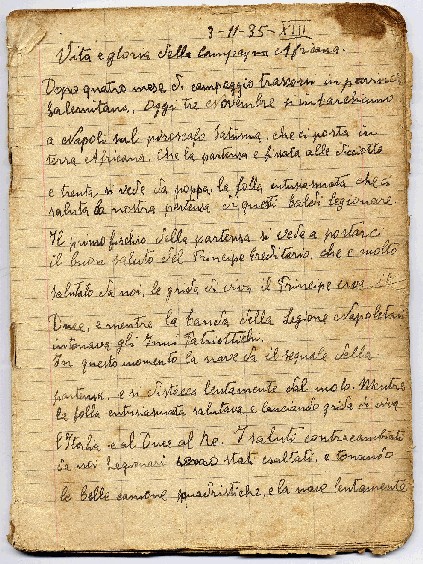 3-11-35-XIII
Vita e gloria della Campagna Africana.
Dopo quatro mese di campaggio trascorsi in
Salernitana, Oggi tre Novembre si
a Napoli sul piroscafo Saturnia, che ci porta in
terra Africana. Che la partensa e fisata alle diciotto
e trenta, si vede da poppa, la folla entusiasmata che
saluta la nostra partensa di questi baldi legionare.
Il primo fischio della partensa si vede a portarci
il buon saluto del Principe Ereditario, che e molto
salutato da noi, le grida di eviva il Principe
Duce, e mentre la banda della Legione Napoletana
intonava gli Inni Patriottichi.
In questo momento la nave da il segnale della
partensa, e si distacca lentamente dal molo. Mentre
la folla entusiasmata salutava e lanciando grida di eviva
l'Italia e al Duce al Re. I saluti contracambiati
da noi Legionari sono stati esaltati, e
le belle cansone squadristiche, e la nave lentamente